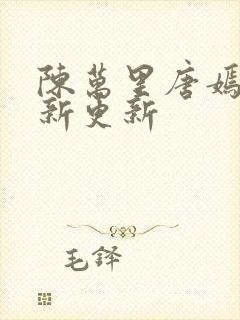 陳萬里唐嫣
新更新
毛鐸